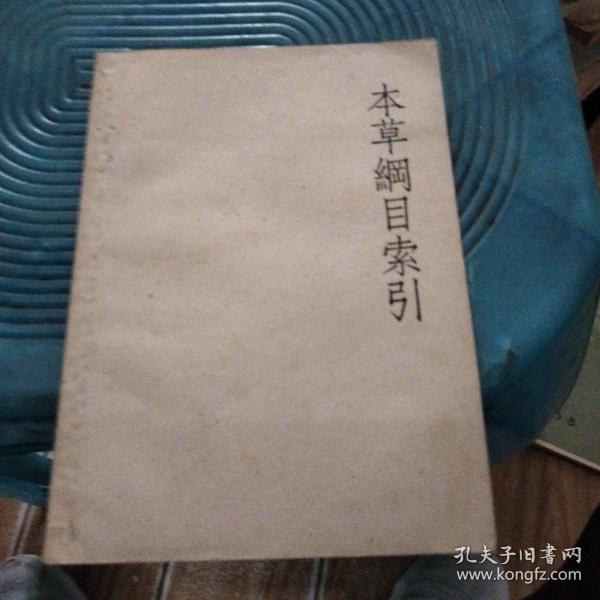 本草綱目索引
孔夫子旧書网
www.kongfz.com